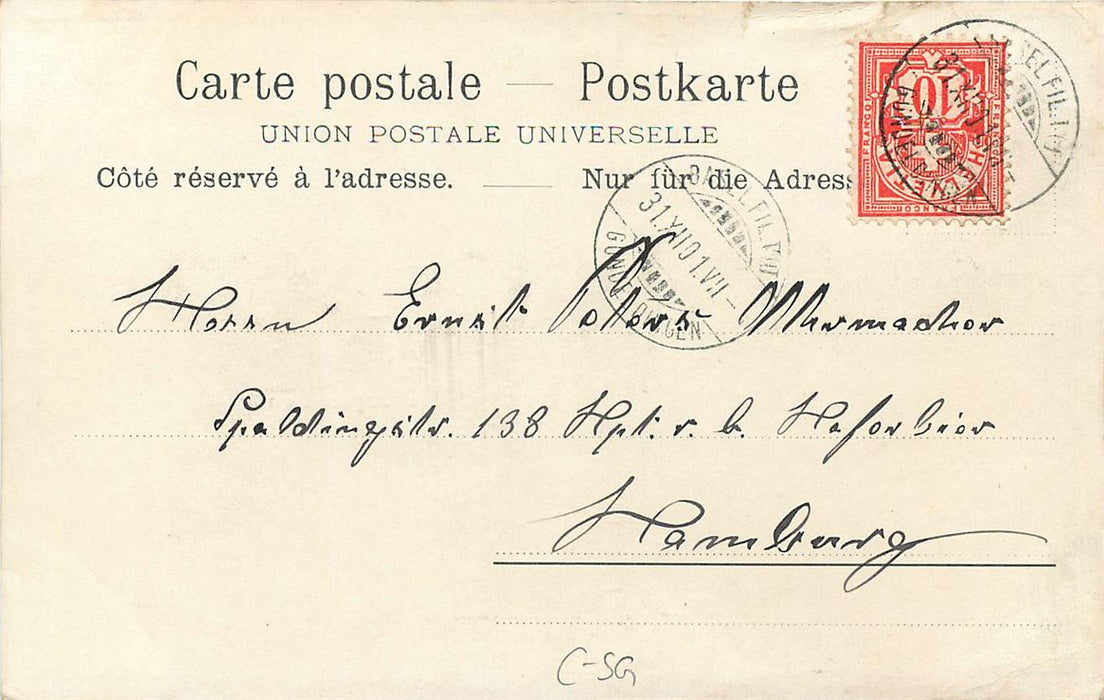 Carte postale — Postkarte
UNION POSTALE UNIVERSELLE
Côté réservé à l'adresse. — Nur für die Adress
FRANCO
FRANCO
FRANCO
10
HELVETIA
BASEL FIL.
31.XII.01.VII–
GUNDELDINGEN
BASEL FIL.
31.XII.01.VII
GUNDELDINGEN
Herrn Ernst Peters Uhrmacher
Spaldingstr. 138 Hpt. r. b.
Hamburg
C-SG